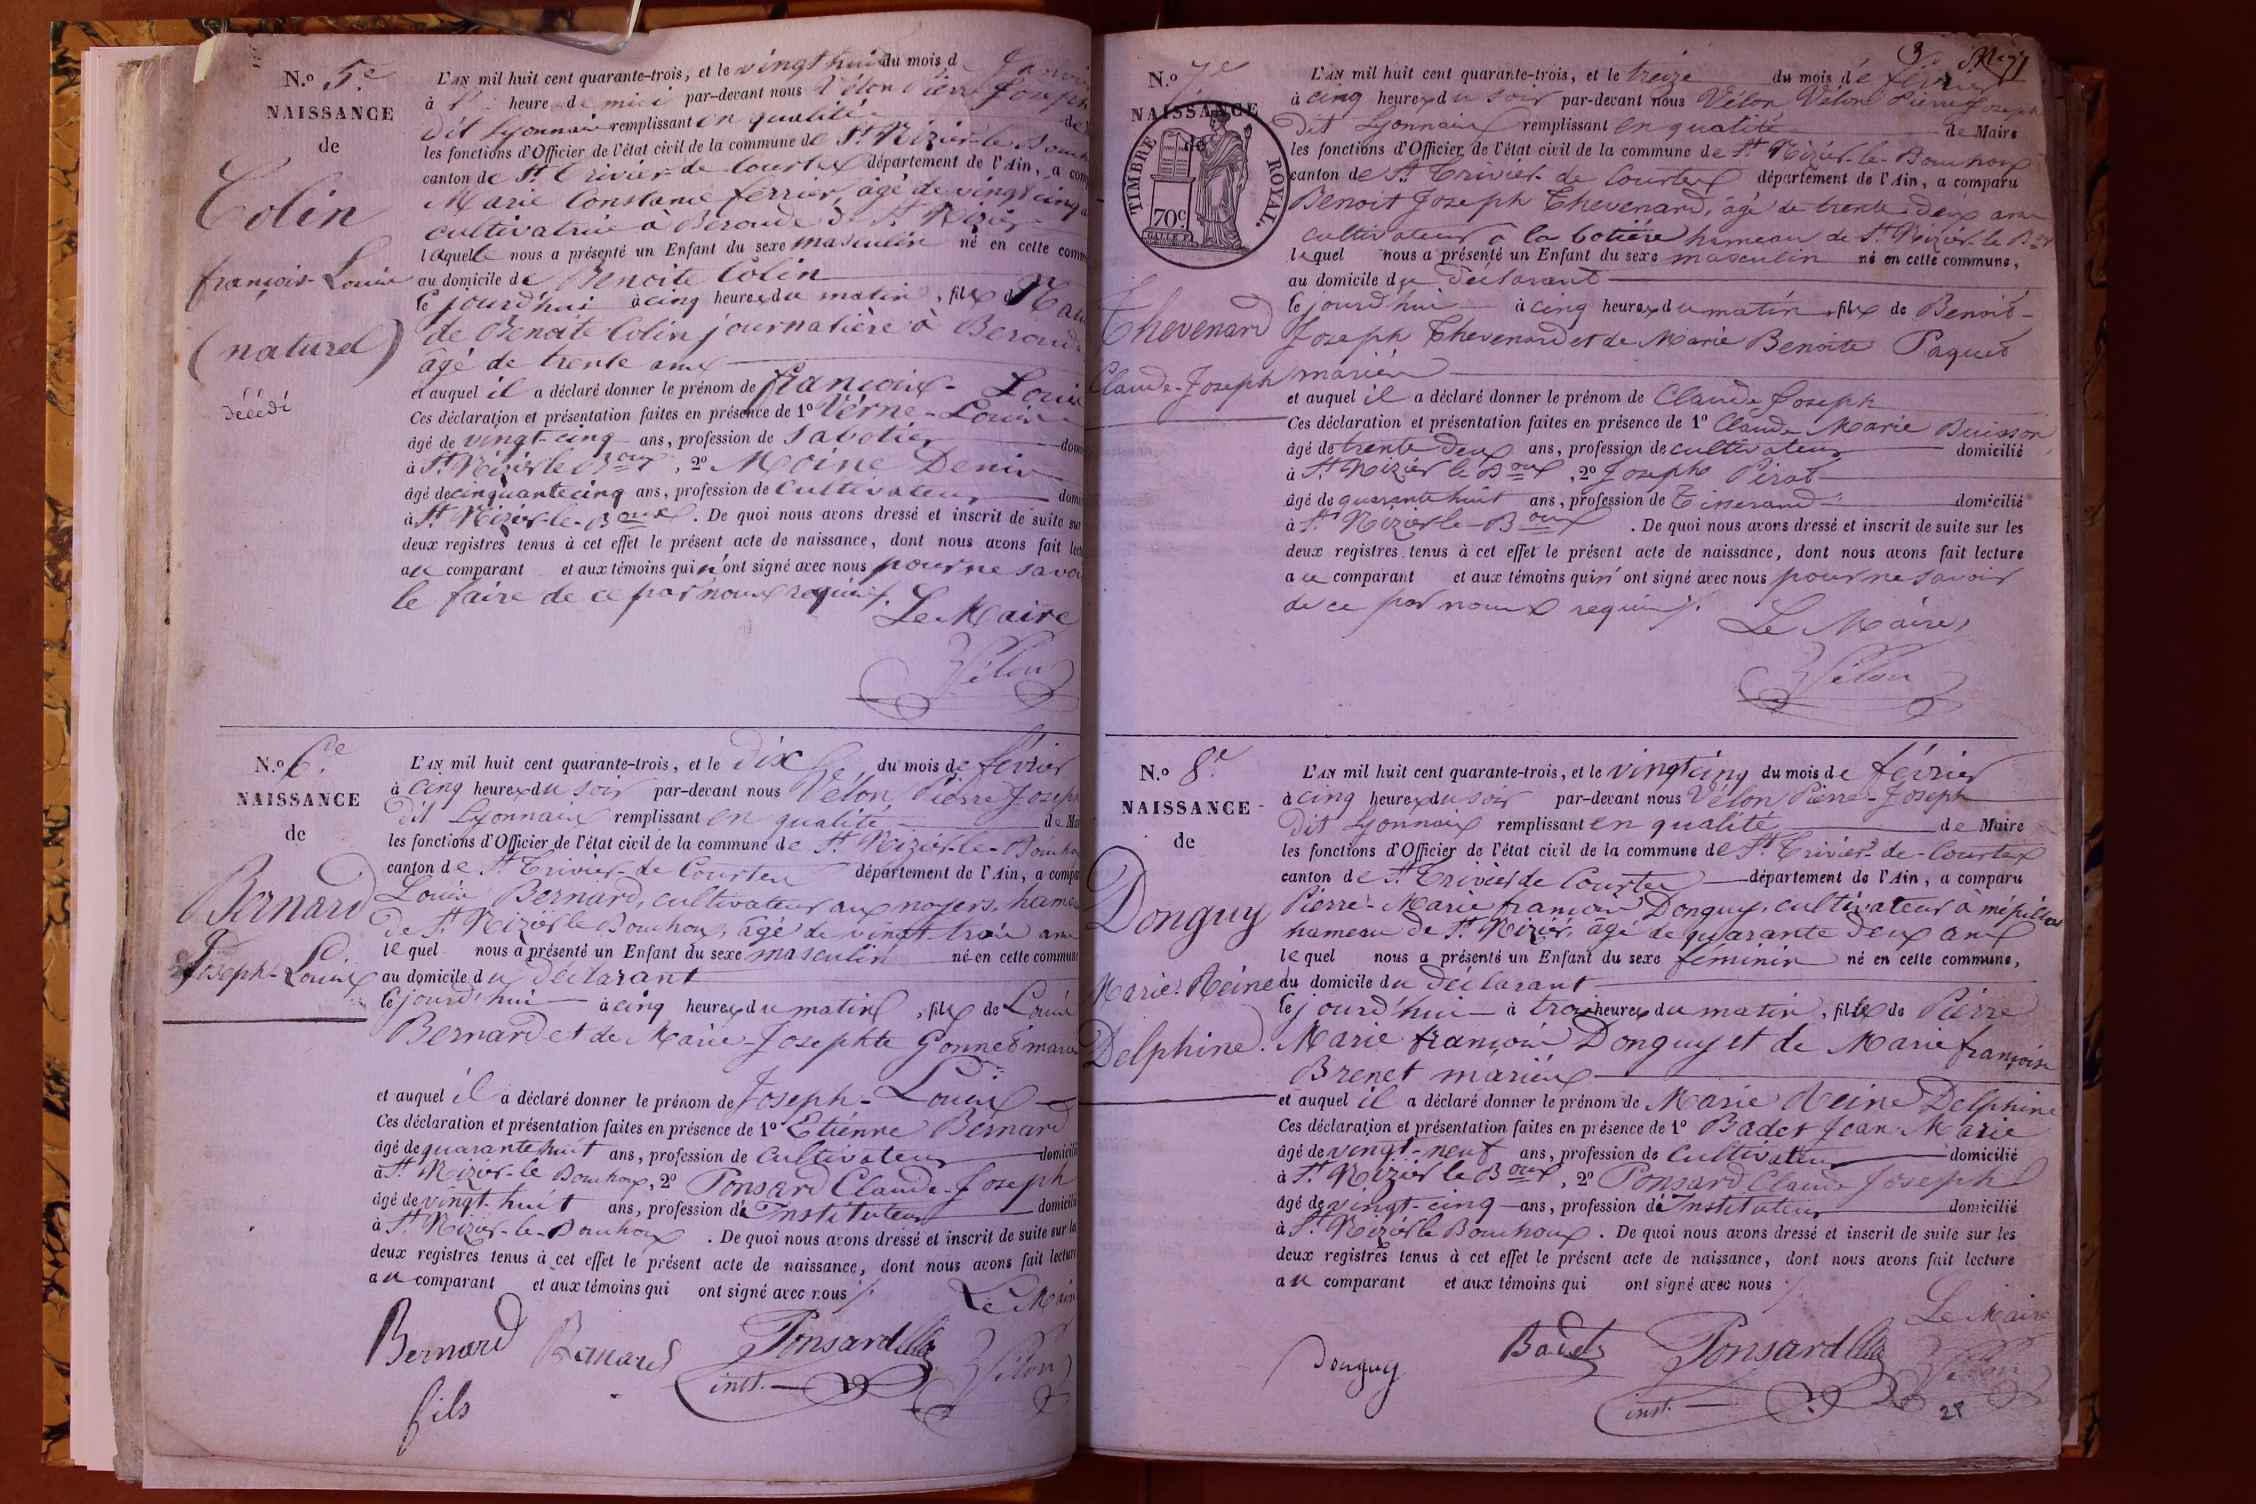 N.o 5.e
NAISSANCE
de
Colin
françois-Louis
(naturel)
décédé
L'AN mil huit cent quarante-trois, et le vingt huit du mois d
à heure de midi par-devant nous Vélon Pierre Joseph
dit Lyonnais remplissant en qualité de
les fonctions d'Officier de l'état civil de la commune de St Nizier-le-Bouch
canton de St Trivier-de Courtes département de l'Ain, a comp
Marie Constance ferrier, âgé de vingt cinq a
cultivatrice à Beroude d. St Nizier
laquelle nous a présenté un Enfant du sexe masculin né en cette comm
au domicile de Benoite Colin
le jourd'hui à cinq heures du matin, fils d
de Benoite Colin journalière à Beroude
âgé de trente ans
et auquel il a déclaré donner le prénom de françois-Louis
Ces déclaration et présentation faites en présence de 1o Verne-Louis
âgé de vingt-cinq ans, profession de Sabotier domi
à St Nizier le Boux, 2o Moine Denis
âgé de cinquante cinq ans, profession de Cultivateur domi
à St Nizier-le-Boux. De quoi nous avons dressé et inscrit de suite sur
deux registres tenus à cet effet le présent acte de naissance, dont nous avons fait lect
au comparant et aux témoins qui n'ont signé avec nous pour ne savoi
le faire de ce par nous requis/.
Le Maire
Vélon
N.o 6.e
NAISSANCE
de
Bernard
Joseph-Louis
L'AN mil huit cent quarante-trois, et le dix du mois de février
à cinq heures du soir par-devant nous Vélon Pierre Joseph
dit Lyonnais remplissant en qualité de Mai
les fonctions d'Officier de l'état civil de la commune de St Nizier-le-Bouchou
canton de St Trivier-de Courtes département de l'Ain, a compa
Louis Bernard, cultivateur aux noyers, hame
de St Nizier le Bouchoux, âgé de vingt-trois ans
lequel nous a présenté un Enfant du sexe masculin né en cette commune
au domicile du déclarant
le jourd'hui à cinq heures du matin, fils de Louis
Bernard et de Marie-Josephte Gonnet marié
et auquel il a déclaré donner le prénom de Joseph-Louis
Ces déclaration et présentation faites en présence de 1o Etiénne Bernard
âgé de quarante huit ans, profession de Cultivateur domicilié
à St Nizier-le Bouchoux, 2o Ponsard Claude-Joseph
âgé de vingt-huit ans, profession de Instituteur domicilié
à St Nizier-le-Bouchoux. De quoi nous avons dressé et inscrit de suite sur les
deux registres tenus à cet effet le présent acte de naissance, dont nous avons fait lecture
au comparant et aux témoins qui ont signé avec nous/.
Le Maire
Bernard fils
Bernard
Ponsard
inst.
Vélon
3
N.o 7.e
NAISSANCE
de
TIMBRE ROYAL.
70c.
Thevenard
Claude-Joseph
L'AN mil huit cent quarante-trois, et le treize du mois de février
à cinq heures du soir par-devant nous Vélon Vélon Pierre Joseph
dit Lyonnais remplissant en qualité de Maire
les fonctions d'Officier de l'état civil de la commune de St Nizier-le-Bouchoux
canton de St Trivier-de Courtes département de l'Ain, a comparu
Benoit Joseph Thevenard, âgé de trente deux ans
cultivateur à la botiere hameau de St Nizier le Boux
lequel nous a présenté un Enfant du sexe masculin né en cette commune,
au domicile du déclarant
le jourd'hui à cinq heures du matin, fils de Benoit-
Joseph Thevenard et de Marie Benoite Paquet
mariés
et auquel il a déclaré donner le prénom de Claude Joseph
Ces déclaration et présentation faites en présence de 1o Claude Marie Buisson
âgé de trente deux ans, profession de cultivateur domicilié
à St Nizier le Boux, 2o Joseph Pirat
âgé de quarante huit ans, profession de Tisserand domicilié
à St Nizier le-Boux. De quoi nous avons dressé et inscrit de suite sur les
deux registres tenus à cet effet le présent acte de naissance, dont nous avons fait lecture
au comparant et aux témoins qui n'ont signé avec nous pour ne savoir
de ce par nous requis/.
Le Maire
Vélon
N.o 8.e
NAISSANCE
de
Donguy
Marie-Reine
Delphine.
L'AN mil huit cent quarante-trois, et le vingt cinq du mois de février
à cinq heures du soir par-devant nous Vélon Pierre-Joseph
dit Lyonnais remplissant en qualité de Maire
les fonctions d'Officier de l'état civil de la commune de St Trivier-de-Courtes
canton de St Trivier de Courtes département de l'Ain, a comparu
Pierre-Marie françois Donguy, cultivateur à mépillat
hameau de St Nizier, âgé de quarante deux ans
lequel nous a présenté un Enfant du sexe féminin né en cette commune,
au domicile du déclarant
le jourd'hui à trois heures du matin, fille de Pierre
Marie françois Donguy et de Marie françoise
Brenet mariés
et auquel il a déclaré donner le prénom de Marie Reine Delphine
Ces déclaration et présentation faites en présence de 1o Badet Jean-Marie
âgé de vingt-neuf ans, profession de Cultivateur domicilié
à St Nizier le Boux, 2o Ponsard Claude Joseph
âgé de vingt-cinq ans, profession de Instituteur domicilié
à St Nizier le Bouchoux. De quoi nous avons dressé et inscrit de suite sur les
deux registres tenus à cet effet le présent acte de naissance, dont nous avons fait lecture
au comparant et aux témoins qui ont signé avec nous/.
Le Maire
Donguy
Badet
Ponsard
inst.
Vélon